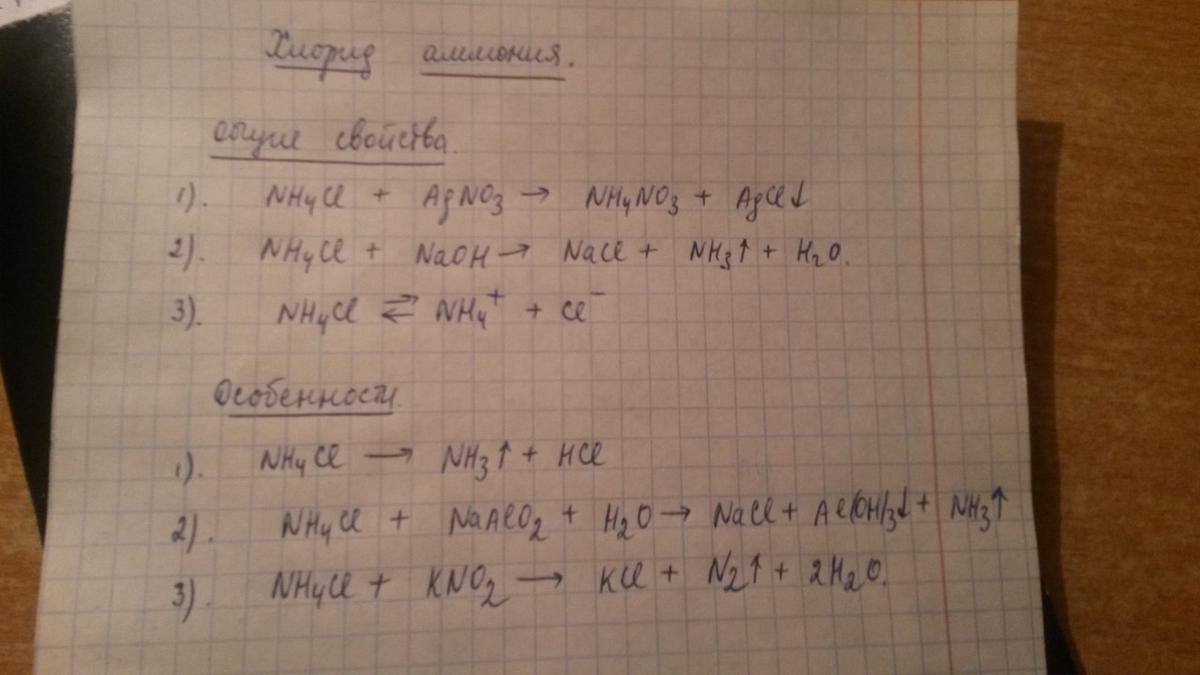 Хлорид аммония.
Общие свойства.
1). NH4Cl + AgNO3 → NH4NO3 + AgCl↓
2). NH4Cl + NaOH → NaCl + NH3↑ + H2O.
3). NH4Cl ⇄ NH4+ + Cl−
Особенности.
1). NH4Cl → NH3↑ + HCl
2). NH4Cl + NaAlO2 + H2O → NaCl + Al(OH)3↓ + NH3↑
3). NH4Cl + KNO2 → KCl + N2↑ + 2H2O.